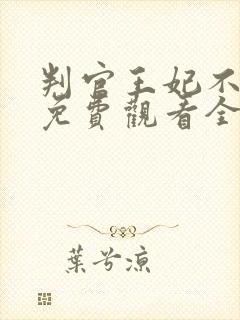 判官王妃不
免費觀看全
葉兮涼